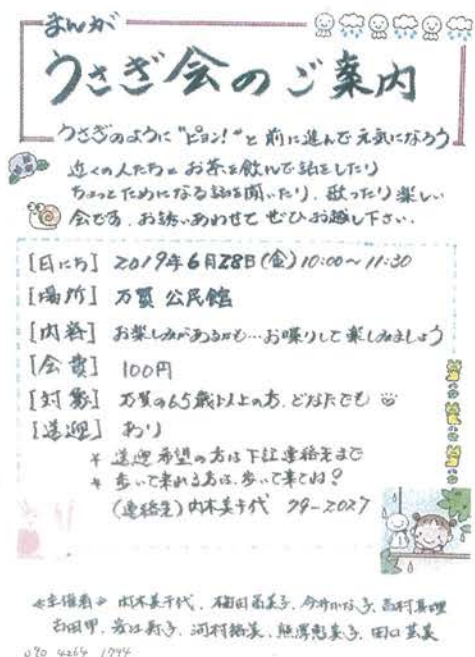 まんが
うさぎ会のご案内
うさぎのように"ピョン!"と前に進んで元気になろう
近くの人たちとお茶を飲んで話をしたり
ちょっとためになる話を聞いたり、歌ったり楽しい
会です。お誘いあわせてぜひお越し下さい。
[日にち] 2019年6月28日(金)10:00〜11:30
[場所] 万賀 公民館
[内容] お楽しみがあるかも…お喋りして楽しみましょう
[会費] 100円
[対象] 万賀の65歳以上の方、どなたでも
[送迎] あり
* 送迎希望の方は下記連絡先まで
* 歩いて来れる方は、歩いて来てね?
(連絡先) 内木美千代 79-2027
<主催者> 内木美千代、梅田
吉田甲、河村、田口
090 4264 1794